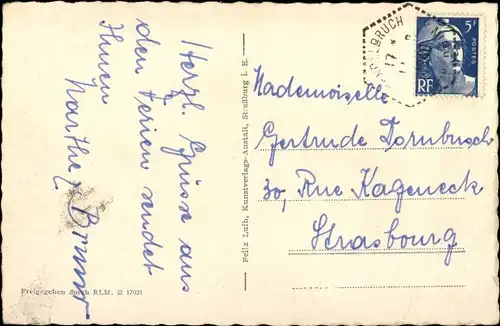 Herzl. Grüsse aus
den Ferien sendet
Ihnen
Marthe Braun
Freigegeben durch RLM. E 17031
Felix Luib, Kunstverlags-Anstalt, Straßburg i. E.
5F
POSTES
RF
17
Mademoiselle
Gertrude Dornbusch
30, Rue Kageneck
Strasbourg